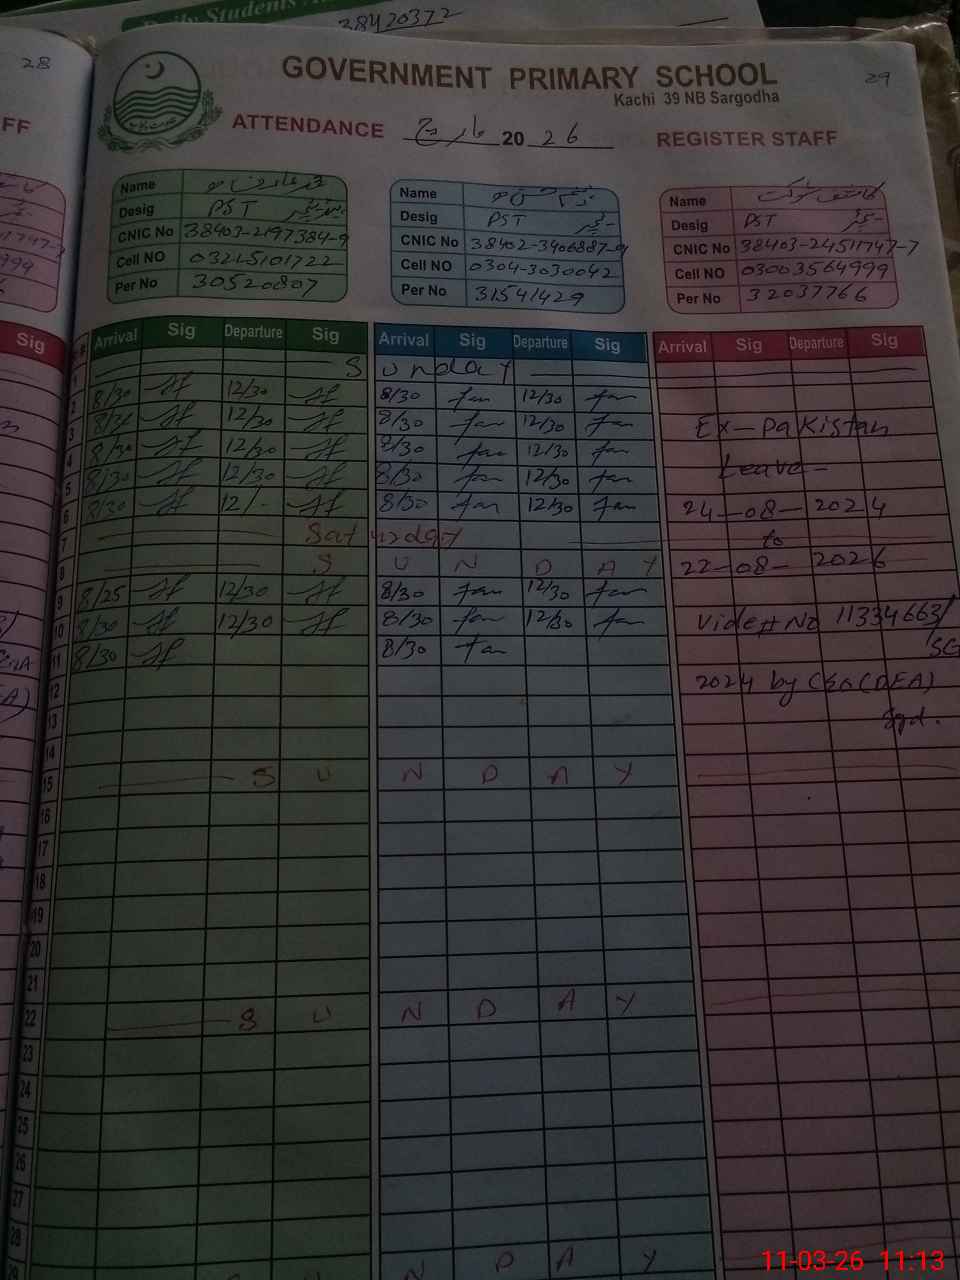 Daily Students
38420372
28
29
GOVERNMENT PRIMARY SCHOOL
Kachi 39 NB Sargodha
ATTENDANCE مارچ 2026 REGISTER STAFF
FF
Name
Desig PST
CNIC No 38403-2197384-9
Cell NO 0321-5101722
Per No 30520807
Name
Desig PST
CNIC No 38402-3406887-9
Cell NO 0304-3030042
Per No 31541429
Name
Desig PST
CNIC No 38403-2451747-7
Cell NO 03003564999
Per No 32037766
Sig
Arrival Sig Departure Sig Arrival Sig Departure Sig Arrival Sig Departure Sig
1 Sunday
2 8/30 12/30 8/30 12/30
3 8/30 12/30 8/30 12/30 Ex-Pakistan
4 8/30 12/30 8/30 12/30 Leave-
5 8/30 12/30 8/30 12/30
6 8/30 12/- 8/30 12/30 24-08-2024
7 Saturday to
8 SUNDAY 22-08-2026
9 8/25 12/30 8/30 12/30
10 8/30 12/30 8/30 12/30 Vide # No 11334663/
11 8/30 8/30 SG
12 2024 by CEO (DEA)
13 Sgd.
14
15 SUNDAY
16
17
18
19
20
21
22 SUNDAY
23
24
25
26
27
28
29 NDAY
11-03-26 11:13